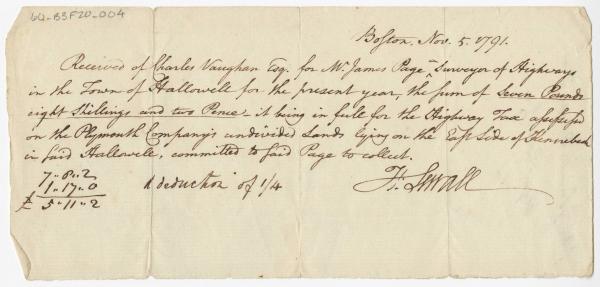 60-B3F20-004
Boston, Nov. 5. 1791.
Received of Charles Vaughan Esq. for Mr. James Page Surveyor of Highways
in the Town of Hallowell for the present year, the sum of Seven Pounds
eight Shillings and two Pence - it being in full for the Highway Tax assessed
on the Plymouth Company's undivided Lands lying on the East Side of Kennebeck
in said Hallowell, committed to said Page to collect.
7..8..2
1..17..0 A deduction of 1/4
£ 5..11..2
Sewall